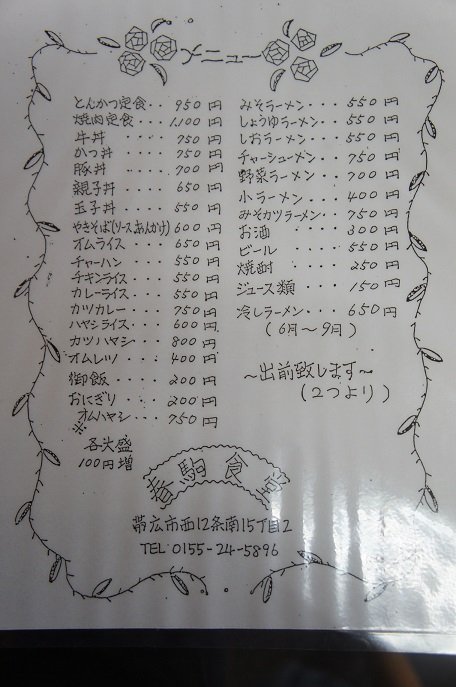 メニュー
とんかつ定食・・950円
焼肉定食・・・1,100円
牛丼・・・・750円
かつ丼・・・750円
豚丼・・・・700円
親子丼・・・650円
玉子丼・・・550円
やきそば(ソースあんかけ)600円
オムライス・・・650円
チャーハン・・・550円
チキンライス・・550円
カレーライス・・550円
カツカレー・・・750円
ハヤシライス・・600円
カツハヤシ・・・800円
オムレツ・・・400円
御飯・・・・200円
おにぎり・・・200円
※オムハヤシ・・・750円
各大盛
100円増
みそラーメン・・・550円
しょうゆラーメン・・550円
しおラーメン・・・550円
チャーシューメン・・750円
野菜ラーメン・・・700円
小ラーメン・・・400円
みそカツラーメン・・750円
お酒・・・・300円
ビール・・・・550円
焼酎・・・・250円
ジュース類・・・150円
冷しラーメン・・・650円
(6月〜9月)
〜出前致します〜
(2つより)
春駒食堂
帯広市西12条南15丁目2
TEL 0155-24-5896